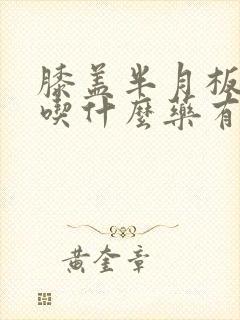 膝盖半月板
喫什麼藥有
黄奎章